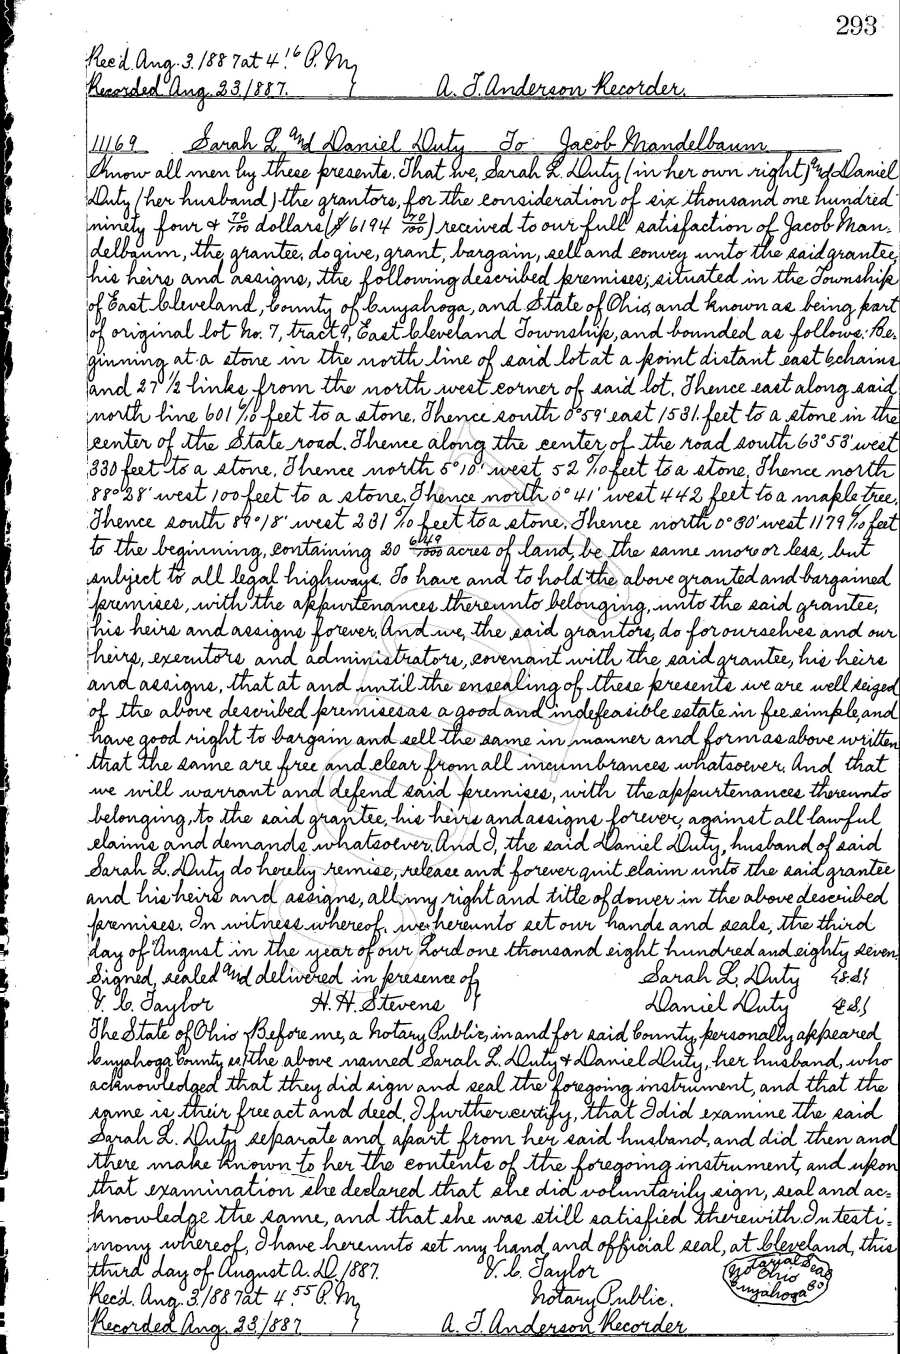 293
Rec'd. Aug. 3. 1887 at 4.16 P.M.
Recorded Aug. 23. 1887. A. T. Anderson Recorder.
11169 Sarah L. and Daniel Duty To Jacob Mandelbaum
Know all men by these presents. That we, Sarah L. Duty (in her own right) and Daniel
Duty (her husband) the grantors, for the consideration of six thousand one hundred
ninety four & 70/100 dollars ($6194 70/100) received to our full satisfaction of Jacob Man=
delbaum, the grantee, do give, grant, bargain, sell and convey unto the said grantee,
his heirs and assigns, the following described premises, situated in the Township
of East Cleveland, County of Cuyahoga, and State of Ohio, and known as being part
of original lot No. 7, tract 9, East Cleveland Township, and bounded as follows: Be=
ginning at a stone in the north line of said lot at a point distant east 6 chains
and 27 1/2 links from the north west corner of said lot. Thence east along said
north line 601 feet to a stone. Thence south 0°59' east 1531. feet to a stone in the
center of the State road. Thence along the center of the road south 63°53' west
330 feet to a stone. Thence north 5°10' west 52 feet to a stone. Thence north
88°28' west 100 feet to a stone. Thence north 0°41' west 442 feet to a maple tree.
Thence south 89°18' west 231 feet to a stone. Thence north 0°30' west 1179 feet
to the beginning, containing 20 649/1000 acres of land, be the same more or less, but
subject to all legal highways. To have and to hold the above granted and bargained
premises, with the appurtenances thereunto belonging, unto the said grantee,
his heirs and assigns forever. And we, the said grantors, do for ourselves and our
heirs, executors and administrators, covenant with the said grantee, his heirs
and assigns, that at and until the ensealing of these presents we are well seized
of the above described premises as a good and indefeasible estate in fee simple, and
have good right to bargain and sell the same in manner and form as above written
that the same are free and clear from all incumbrances whatsoever. And that
we will warrant and defend said premises, with the appurtenances thereunto
belonging, to the said grantee, his heirs and assigns forever, against all lawful
claims and demands whatsoever. And I, the said Daniel Duty, husband of said
Sarah L. Duty do hereby remise, release and forever quit claim unto the said grantee
and his heirs and assigns, all my right and title of dower in the above described
premises. In witness whereof, we hereunto set our hands and seals, the third
day of August in the year of our Lord one thousand eight hundred and eighty seven.
Signed, sealed and delivered in presence of Sarah L. Duty {L.S.}
V. C. Taylor H. H. Stevens Daniel Duty {L.S.}
The State of Ohio Before me, a Notary Public, in and for said County, personally appeared
Cuyahoga County ss. the above named Sarah L. Duty & Daniel Duty, her husband, who
acknowledged that they did sign and seal the foregoing instrument, and that the
same is their free act and deed. I further certify, that I did examine the said
Sarah L. Duty separate and apart from her said husband, and did then and
there make known to her the contents of the foregoing instrument, and upon
that examination she declared that she did voluntarily sign, seal and ac=
knowledge the same, and that she was still satisfied therewith. In testi=
mony whereof, I have hereunto set my hand and official seal, at Cleveland, this
third day of August A.D. 1887. V. C. Taylor Notarial Seal Ohio Cuyahoga Co
Rec'd. Aug. 3. 1887 at 4.55 P.M. Notary Public.
Recorded Aug. 23. 1887 A. T. Anderson Recorder